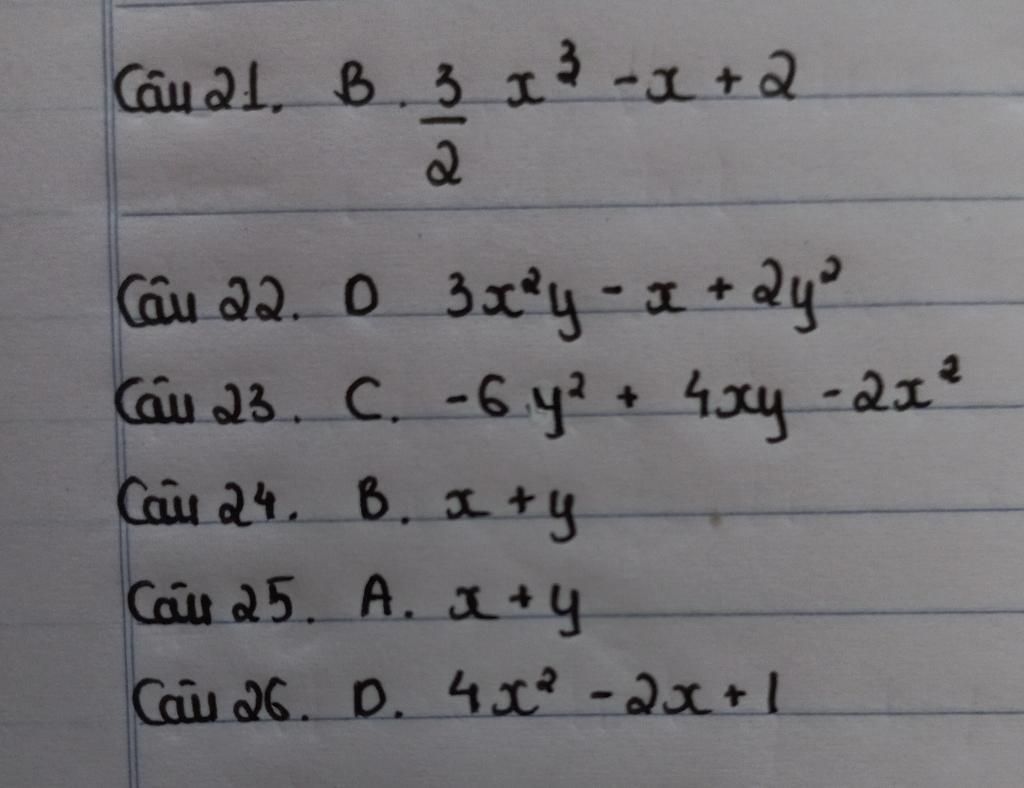 Câu 21. B. 3/2 x³ - x + 2
Câu 22. D 3x²y - x + 2y²
Câu 23. C. -6y² + 4xy - 2x²
Câu 24. B. x + y
Câu 25. A. x + y
Câu 26. D. 4x² - 2x + 1